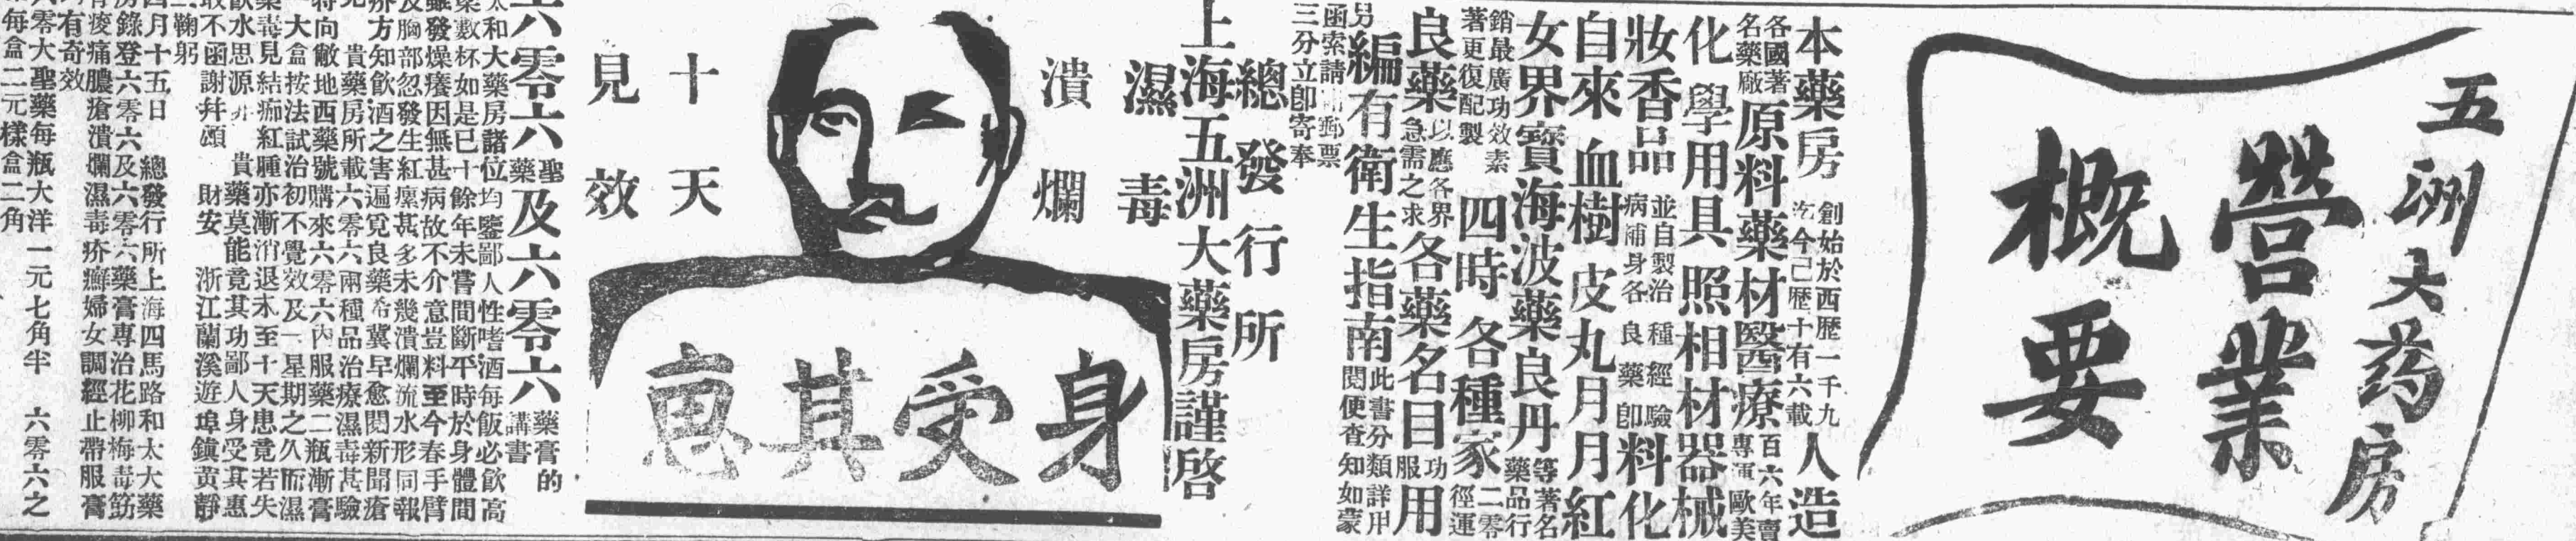 五洲大药房
營業
概要
本藥房創始於西歷一千九百六年賣
汔今已歷十有六載專運歐美
各國著名藥廠原料藥材醫療
化學用具照相材器械
妝香品並自製治種經驗料化
病浦身各良藥卽
自來血樹皮丸月月紅
女界寶海波藥良丹等著名藥品行
銷最廣功效素著更復配製四時各種家
良藥以應各界急需之求各藥名目服功用
另編有衛生指南此書分類詳用閱便查知如蒙
函索請郵票三分立卽寄奉
人造
二零徑運
總發行所
上海五洲大藥房謹啓
濕毒
潰爛
十天
見效
身受其惠
六零六聖藥及六零六藥膏的講書
太和大藥房諸位均鑒鄙人性嗜酒每飯必飲高
藥數杯如是已十餘年未嘗間斷平時於身體間
雖發燥癢因無甚病故不介意豈料至今春手臂
及胸部忽發生紅癢甚多未幾潰爛流水形同報
疥方知飲酒之害遍覓良藥希冀早愈閱新聞瘡
貴藥房所載六零六兩種品治療濕毒甚驗
特向敝地西藥號購來六零六內服藥二瓶漸膏
一大盒按法試治初不覺效及一星期之久而濕
藥毒見結痂紅腫亦漸消退未至十天患竟若失
飲水思源貴藥莫能竟其功鄙人身受其惠
敢不函謝幷頌財安浙江蘭溪遊埠鎮黃靜
鞠躬
四月十五日總發行所上海四馬路和太大藥
房錄登六零六及六零六藥膏專治花柳梅毒筋
骨痠痛膿瘡潰爛濕毒疥癬婦女調經止帶服膏
有奇效
六零大聖藥每瓶大洋一元七角半六零六之
每盒二元樣盒二角